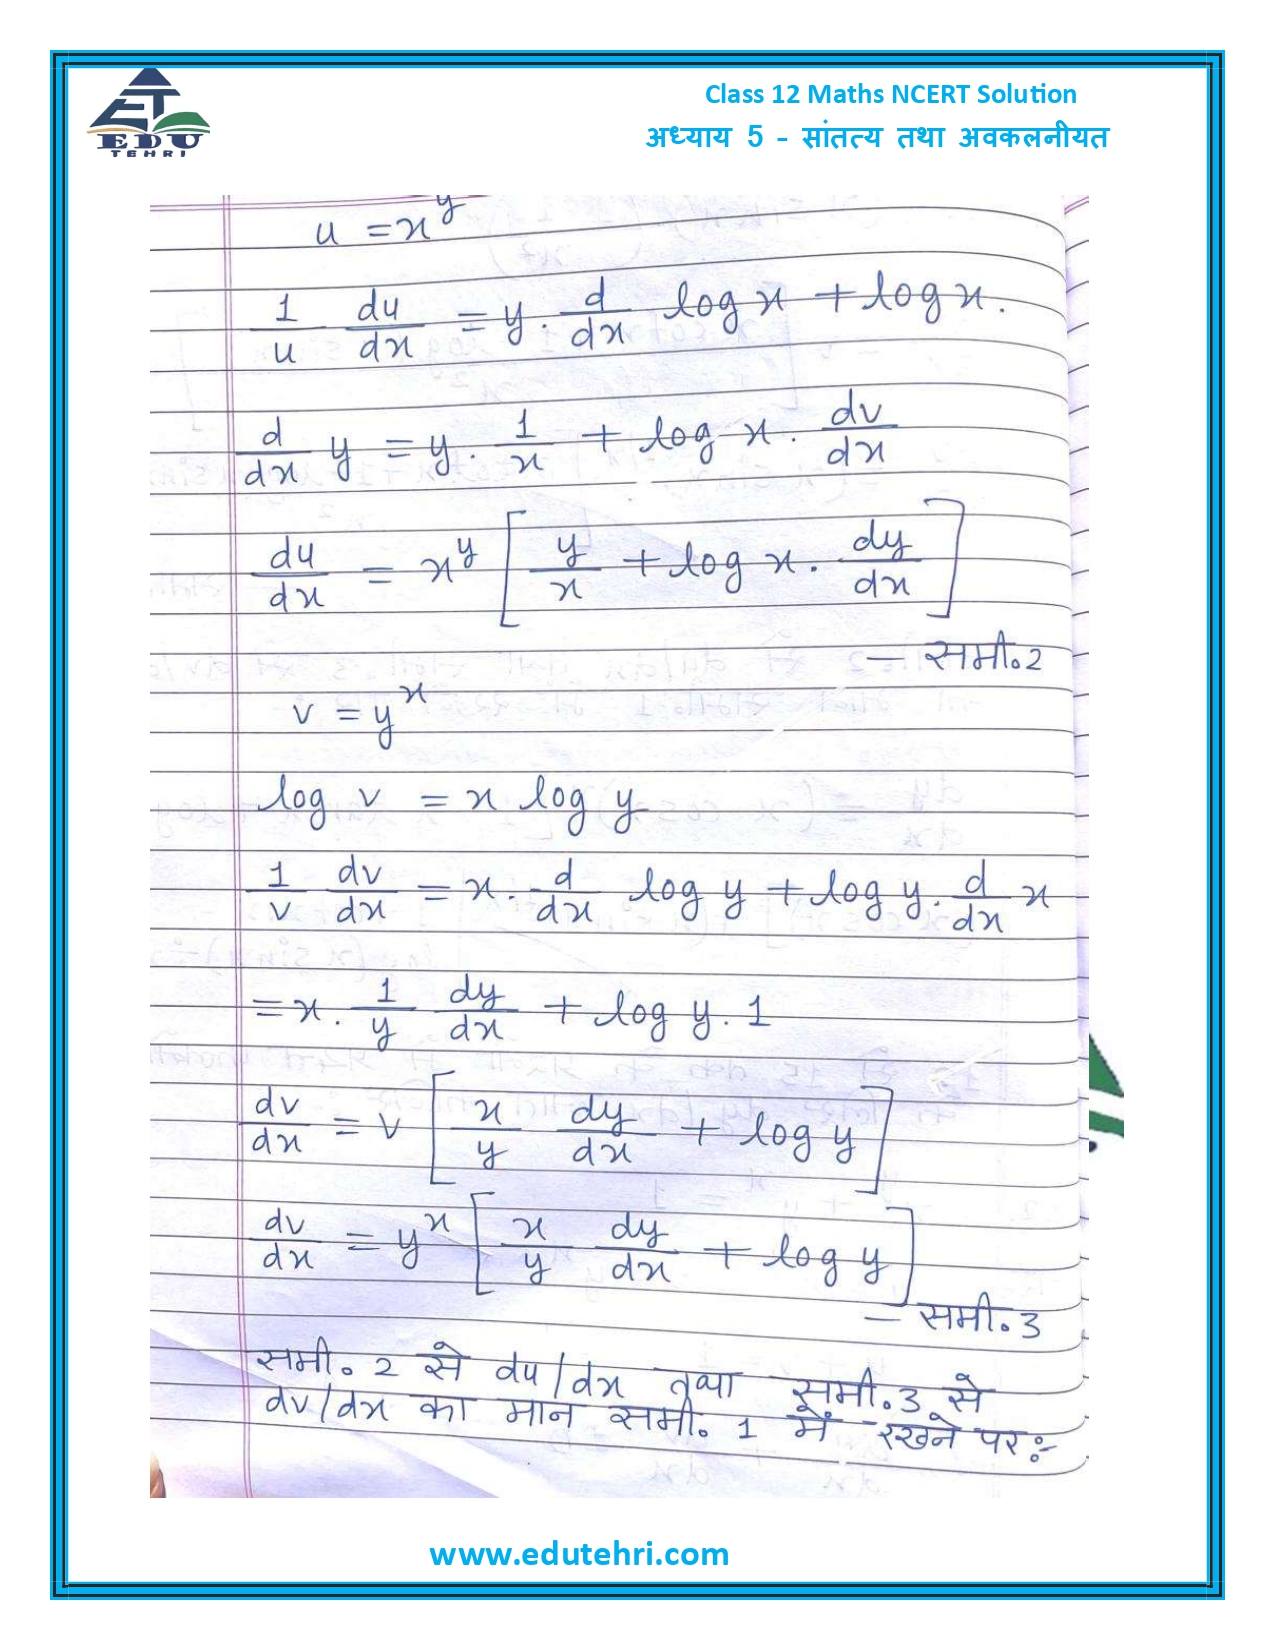 EDU
TEHRI
Class 12 Maths NCERT Solution
अध्याय 5 - सांतत्य तथा अवकलनीयत
u = x^y
1/u du/dx = y . d/dx log x + log x .
d/dx y = y . 1/x + log x . dv/dx
du/dx = x^y [ y/x + log x . dy/dx ]
– समी.2
v = y^x
log v = x log y
1/v dv/dx = x . d/dx log y + log y . d/dx x
= x . 1/y dy/dx + log y . 1
dv/dx = v [ x/y dy/dx + log y ]
dv/dx = y^x [ x/y dy/dx + log y ]
– समी.3
समी. 2 से du/dx तथा समी.3 से
dv/dx का मान समी. 1 में रखने पर:-
www.edutehri.com